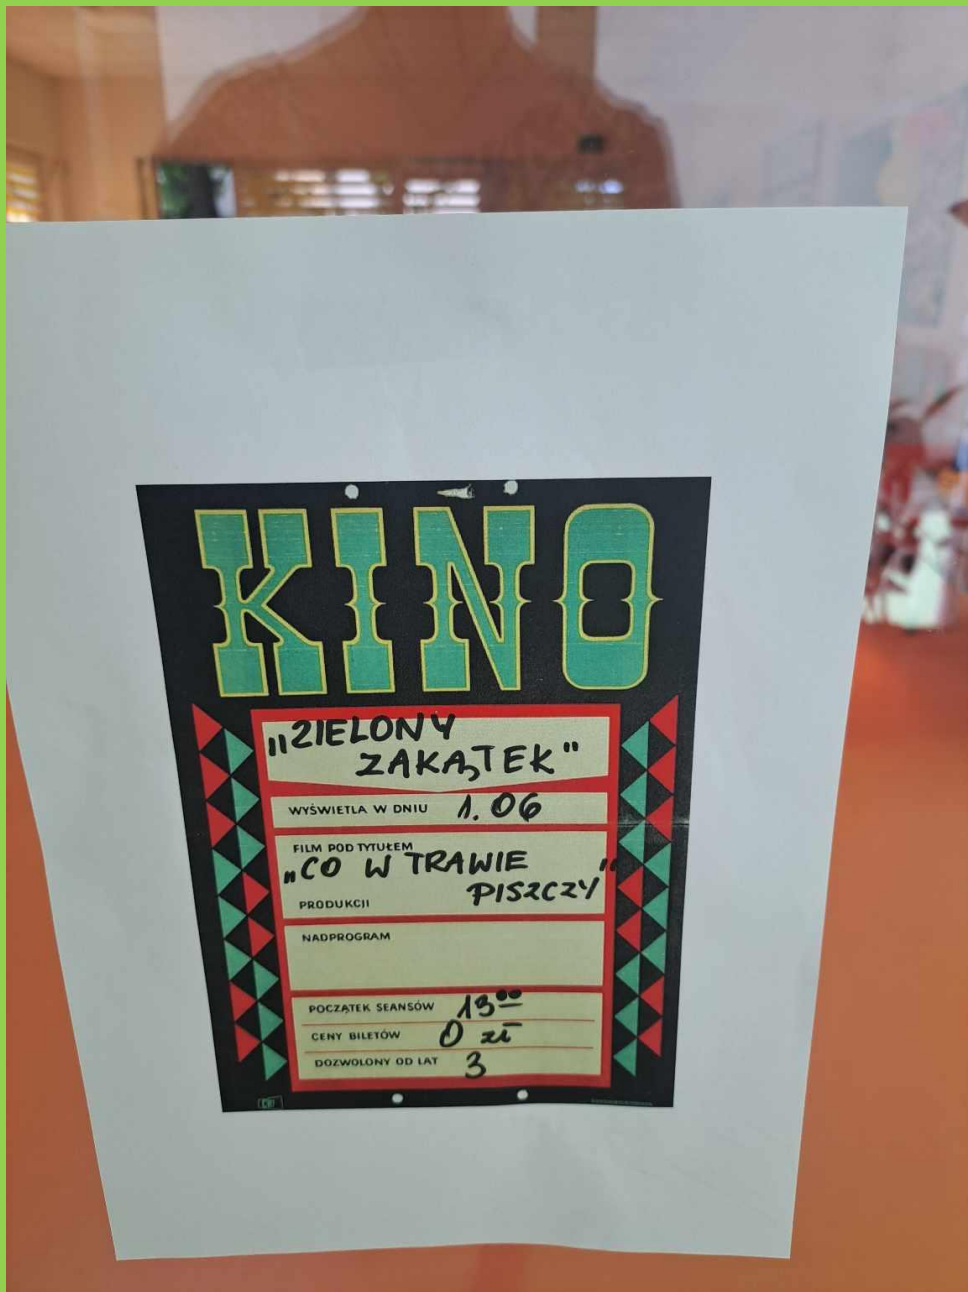 KINO
„ZIELONY
ZAKĄTEK"
WYŚWIETLA W DNIU 1.06
FILM POD TYTUŁEM
„CO W TRAWIE
PISZCZY"
PRODUKCJI
NADPROGRAM
POCZĄTEK SEANSÓW 13⁰⁰
CENY BILETÓW 0 zł
DOZWOLONY OD LAT 3